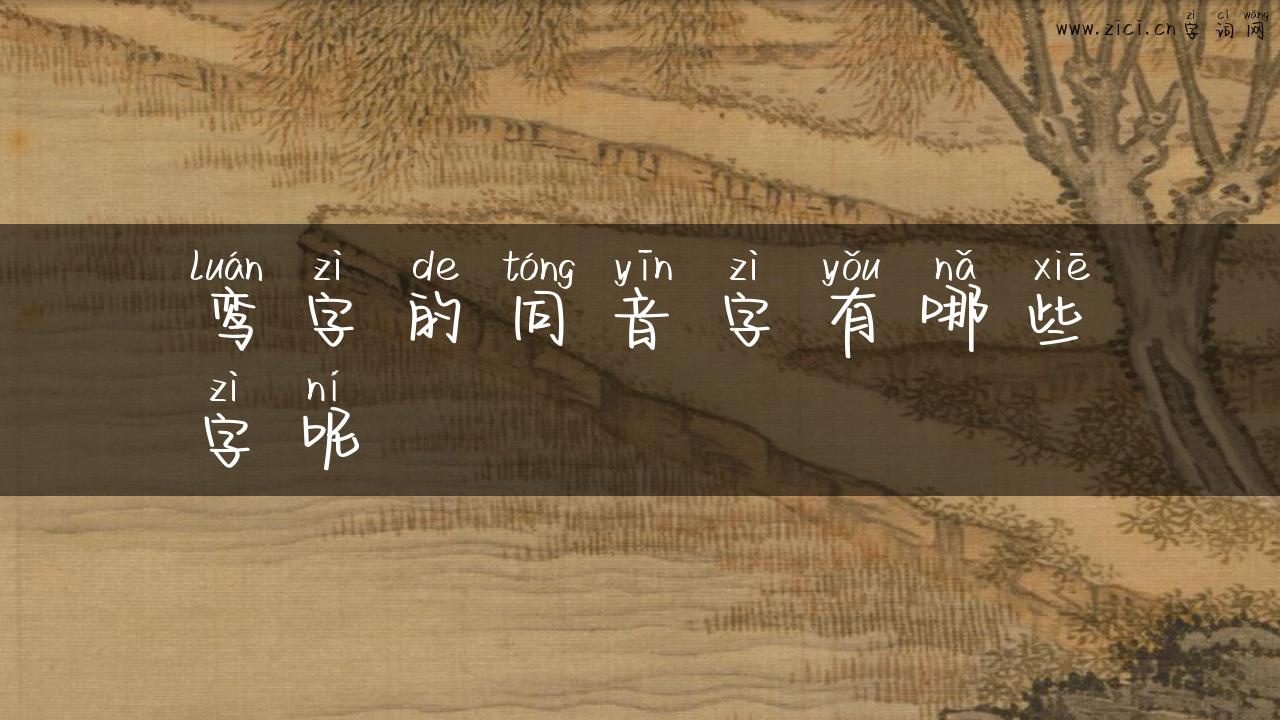 zì cí wǎng
www.zici.cn字词网
luán zì de tóng yīn zì yǒu nǎ xiē
鸾字的同音字有哪些
zì ní
字呢